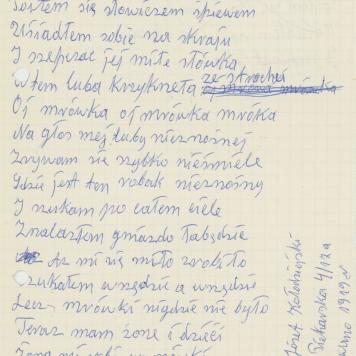 się słowiczem śpiewem
Usiadłem sobie na skraju
I szepcząc jej miłe słówka
Wtem luba krzyknęła ze strachu
Oj mrówka oj mrówka mrówka
Na głos mej luby nieznośnej
Zrywam się szybko nieśmiele
Gdzie jest ten robak nieznośny
I szukam po całem ciele
Znalazłem gniazdo łabędzie
Aż mi się miło zrobiło
szukałem wszędzie a wszędzie
Lecz mrówki nigdzie nie było
Teraz mam żonę i dzieci
Józef
4/12a